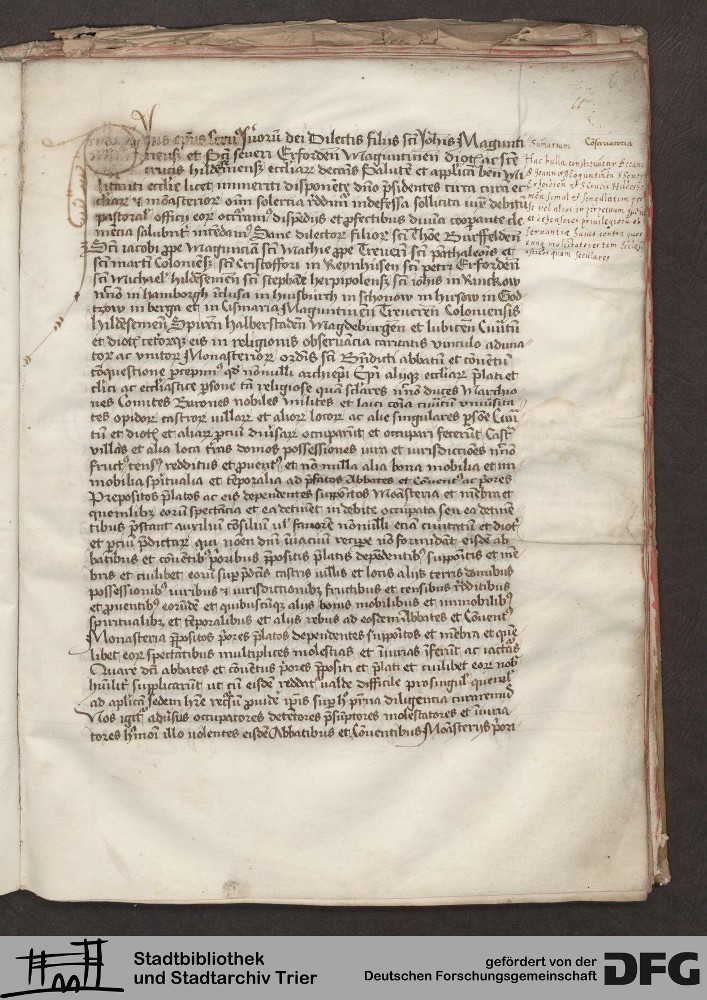 eps servus servoru dei Dilectis filiis sci Johis Magunti
nens et Sci Severi Erforden Maguntinen dioc ac sce
Crucis hildemens eccliar decanis Salute et aplicā ben Mi
litanti ecclie licet immeriti disponente dno psidentes circa cura ec
cliar et monasterior oim solercia reddim indefessa solliciti ut iux debitu
pastoral officii eor occurram dispendijs et profectibus divina cooperante cle
mencia salubrit intendam Sane dilector filior sci Thoe Bursfelden
Sci Jacobi ppe Maguncia sci Mathie ppe Treveri sci panthaleois et
sci martī Coloniens sci Cristoffori in Reynhusen sci petri Erforden
sci Michael hildesemen sci stephane herpipolens sci iohis in Rinckow
nno in hamborgh clusa in husburch in schonow in hursow in God
tzow in berga et in Cismaria Maguntinen Treveren Coloniensis
hildesemen Spiren halberstaden Magdeburgen et lubicen Civitatu
et dioc ceterorq eis in religionis observacia caritatis vinculo aduna
tor ac unitor Monasterior ordis sci Bndicti abbatū et conventū
coquestione precepim qd nonulli archiepi Epi alijq eccliar plati et
clici ac eccliastice psone tā religiose quā sclares nno duces Marchio
nes Comites Barones nobiles milites et laici coīa civitū universita
tes opidor castror villar et alior locor ac alie singulares psoe Civi
tū et dioc et aliar pciū diusar occuparūt et occupari fecerūt Castr
villas et alia loca tras domos possessiones iura et iurisdictioes nno
fruct cens redditus et pvent et nō nulla alia bona mobilia et im
mobilia spiritualia et tēporalia ad pfatos Abbates et Convent ac pores
Prepositos platos ac eis dependentes suppoitos Monasteria et mēbra et
quemlibz eorū spectacia et ea detinēt indebite occupata seu ea detinē
tibus pstant auxiliū cōsiliū vl favore nōnulli eciā civitatū et dioc
et pciū pdictar qui noēn dni ī vacuū recipe nō formidāt eisdē ab
batibus et cōventib pribus ppositis platis depēdentib suppoitis et mē
bris et cuilibet eorū sup pdcis castris villis et locis alijs terris domibus
possessionib iuribus et iurisdictionibz fructibus et censibus rdditibus
et pventibus eorūdē et quibuscūq alijs bonis mobilibus et immobilib
spiritualibz et tēporalibus et alijs rebus ad eosdem Abbates et Cōvent
Monasteria ppositos pores platos dependentes suppoitos et mēbra et quē
libet eor spectātibus multiplices molestias et iniurias īferūt ac iactūs
Quare dci abbates et cōventus pores ppositi et plati et cuilibet eor nob
hūilit supplicarūt ut cū eisdē reddat valde difficile pro singul querel
ad aplicā sedem hre recsū providē ipis sup hoc pīna diligencia curarem
Nos igit adūsus occupatores detētores psūptores molestatores et iniuria
tores hmoi illo volentes eisdē Abbatibus et Conventibus Monasterijs pori
Sumarium Coservatoria
Hac bulla constituuntur Decani
S Joannis Moguntinen S Severi
Erfordien et S Crucis Hildese
mēn simul et singulatim per
se vel alios in perpetuum Judices
et defensores privilegiorum
contra quos
cunq molestatores tam Ecclesi
asticos quam seculares
Stadtbibliothek
und Stadtarchiv Trier
gefördert von der
Deutschen Forschungsgemeinschaft
DFG